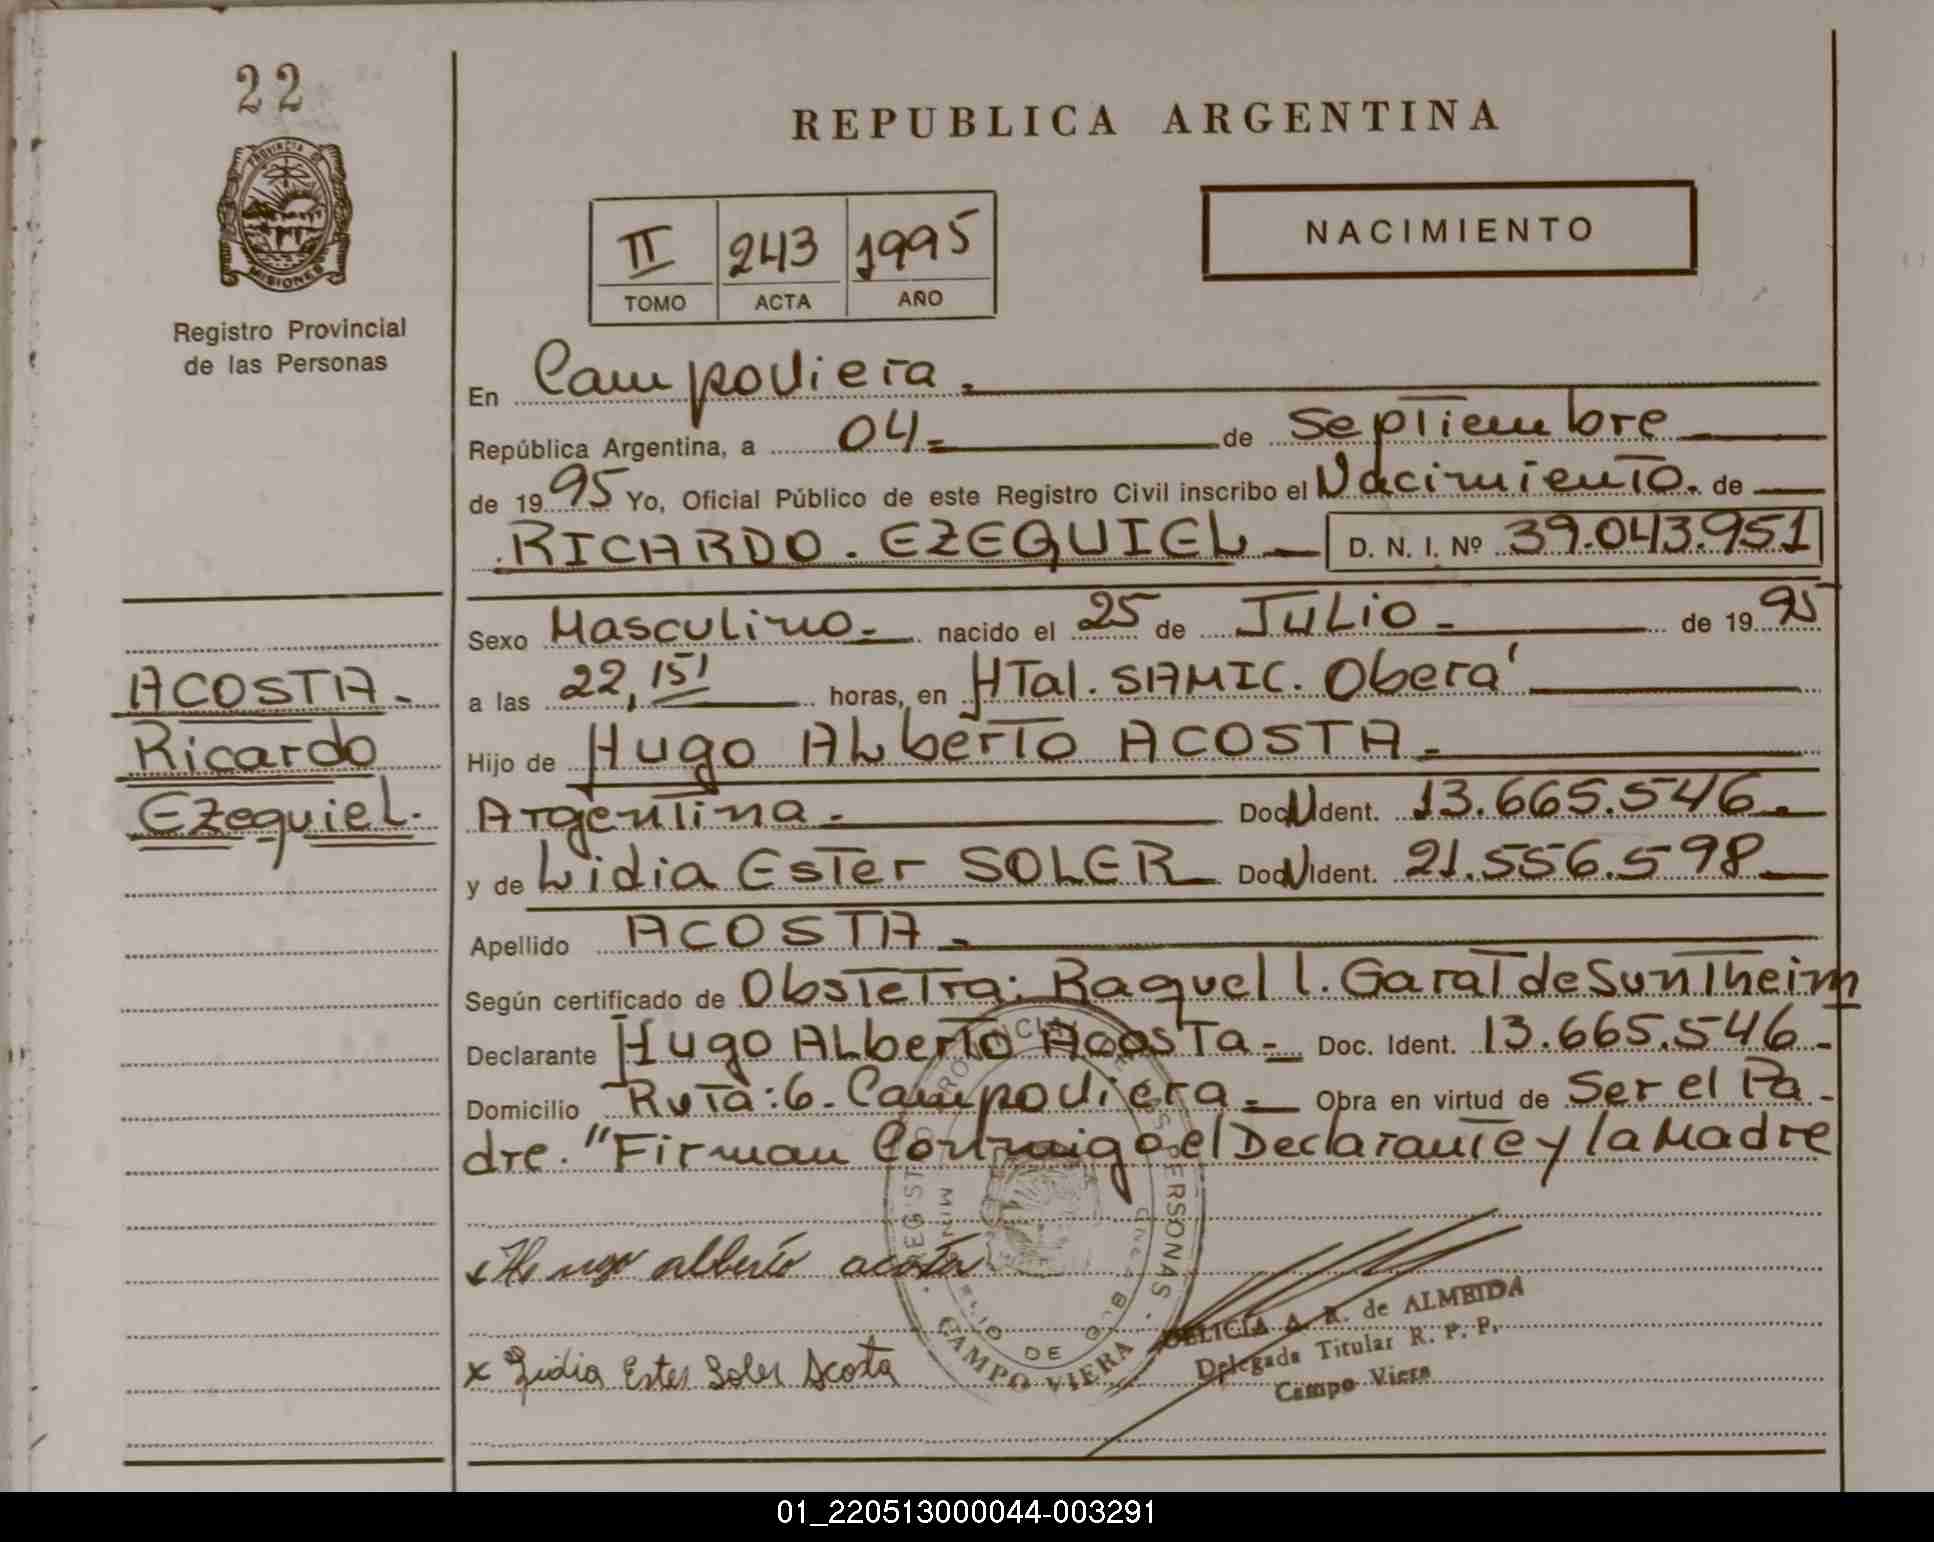 22
PROVINCIA DE
MISIONES
Registro Provincial
de las Personas
ACOSTA.
Ricardo
Ezequiel.
REPUBLICA ARGENTINA
II 243 1995
TOMO ACTA AÑO
NACIMIENTO
En Campoviera.
República Argentina, a 04 de Septiembre
de 1995 Yo, Oficial Público de este Registro Civil inscribo el Nacimiento. de
RICARDO. EZEQUIEL D. N. I. Nº 39.043.951
Sexo Masculino nacido el 25 de JULIO de 1995
a las 22,15' horas, en HTal. SAMIC. Oberá
Hijo de Hugo ALberTo ACOSTA
Argentina. Doc. Ident. 13.665.546.
y de Lidia Ester SOLER Doc. Ident. 21.556.598
Apellido ACOSTA
Según certificado de Obstetra: Raquel l. Garat de Suntheim
Declarante Hugo ALberTo Acosta Doc. Ident. 13.665.546
Domicilio Ruta: 6. Campoviera Obra en virtud de Ser el Pa-
dre. "Firman Conmigo el Declarante y la Madre
Hugo alberto acosta
x Lidia Ester Soler Acosta
CAMPO VIERA
DELICIA A. R. de ALMEIDA
Delegada Titular R. P. P.
Campo Viera
01_220513000044-003291